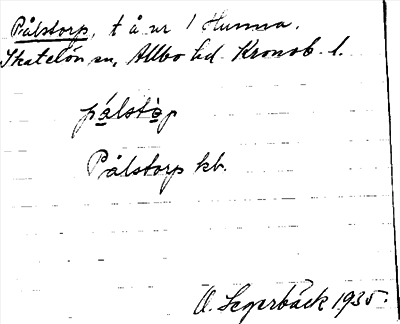 Pålstorp, t å nr 1 Hunna.
Skatelöv sn, Allbo hd. Kronob. l.
pålstòp
Pålstorp kb.
O. Segerbäck 1935.